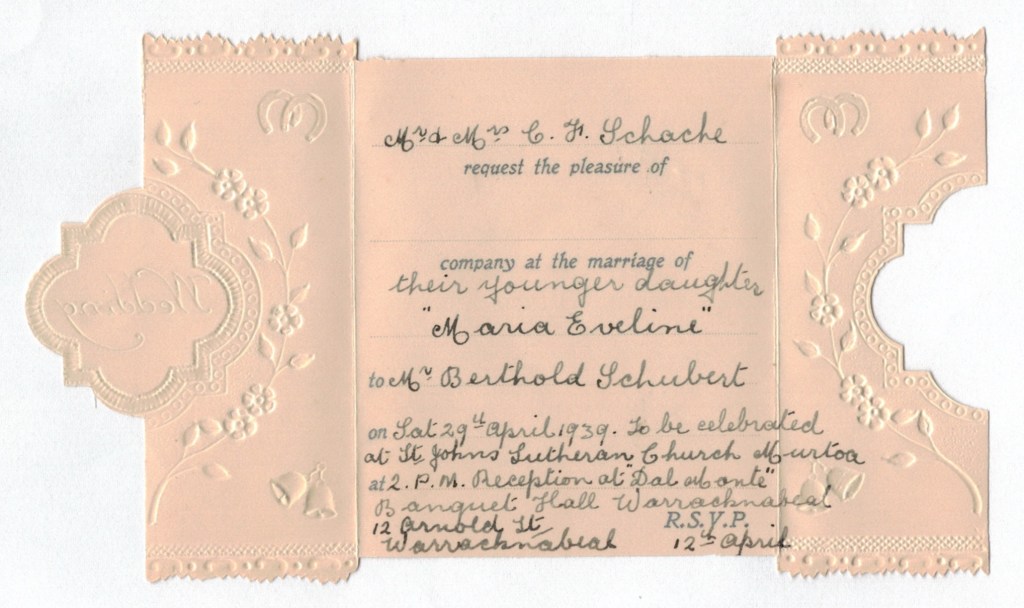 Wedding
Mr & Mrs C. F. Schache
request the pleasure of
company at the marriage of
their younger daughter
"Maria Eveline"
to Mr Berthold Schubert
on Sat 29th April 1939. To be celebrated
at St Johns Lutheran Church Murtoa
at 2. P.M. Reception at "Dal Monte"
Banquet Hall Warracknabeal
12 Arnold St
Warracknabeal
R.S.V.P.
12th April